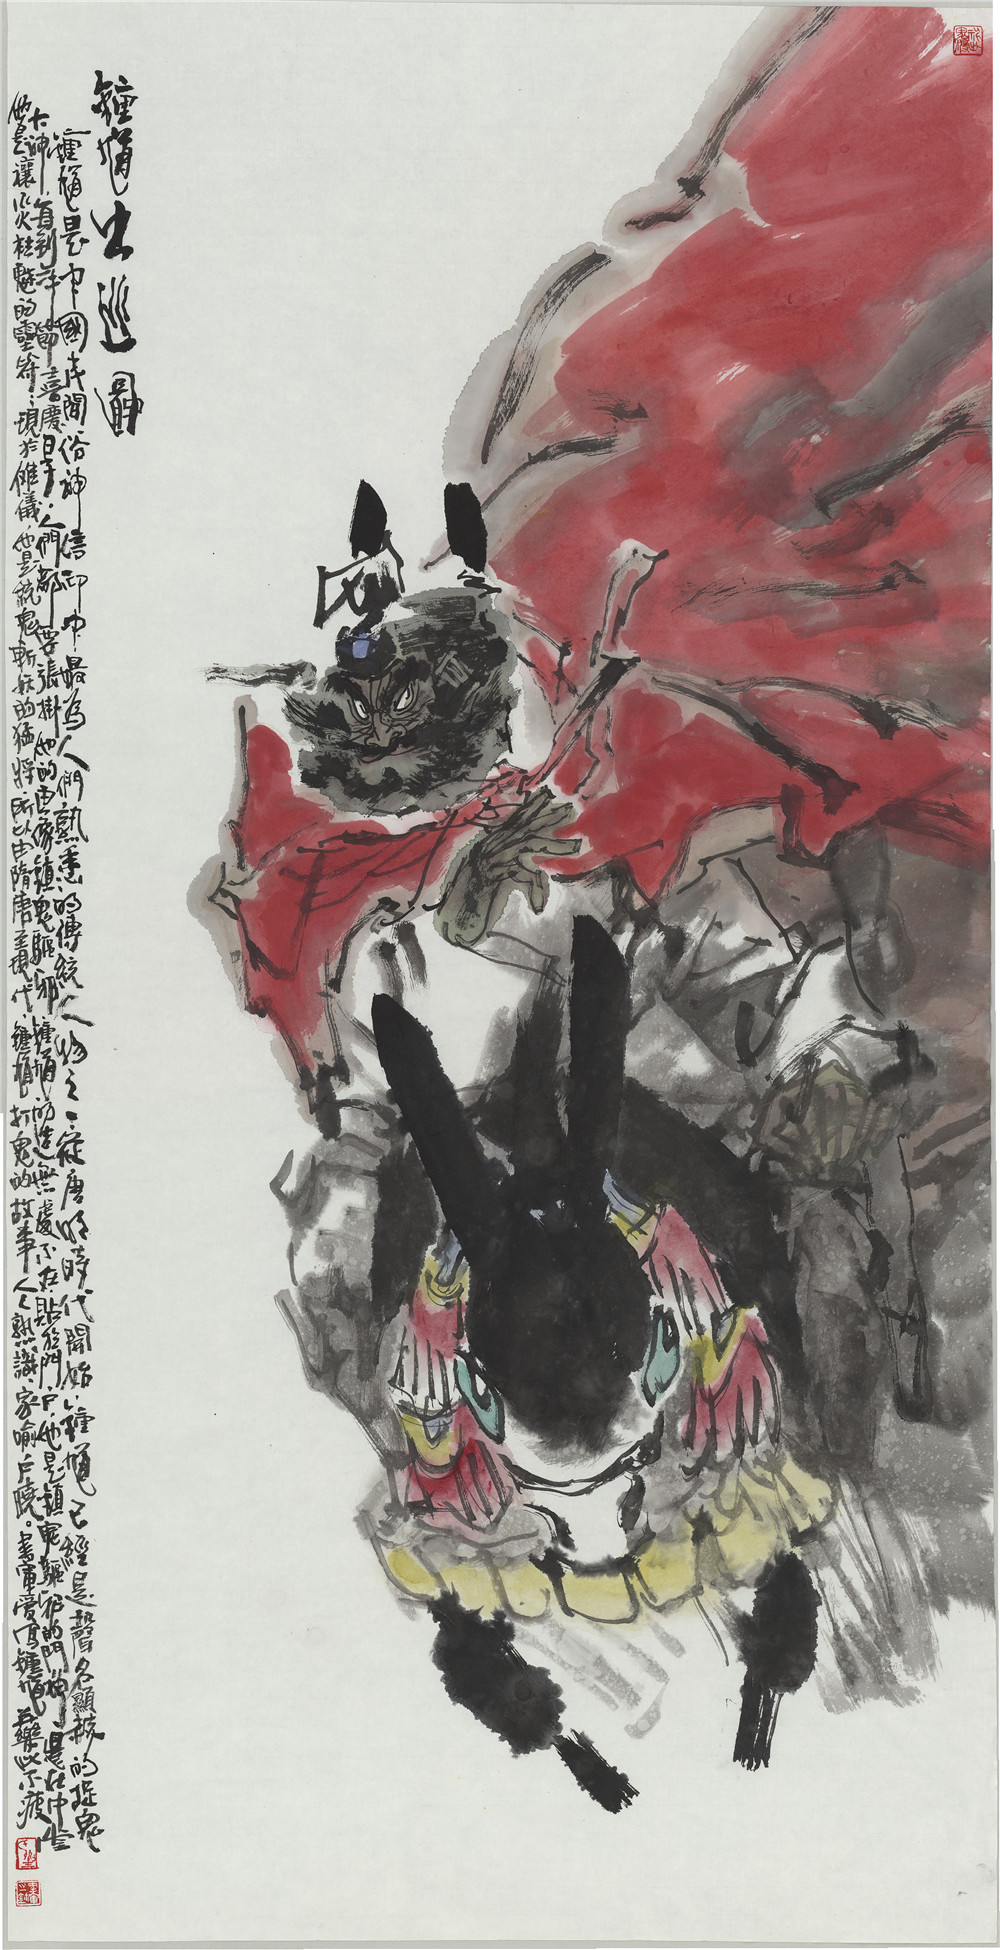 鍾馗出巡圖
鍾馗是中國民間俗神信仰中最為人們熟悉的傳統人物之一從唐時代開始鍾馗已經是聲名顯赫的捉鬼
大神每到年節喜慶日子人們都要張掛他的畫像鎮鬼驅邪鍾馗的造無處不在貼於門戶他是鎮宅驅邪的門神還在中堂
他是禳災祛魅的靈符現於儺儀他是統鬼斬妖的猛將所以由隋唐至現代鍾馗打鬼的故事人人熟識家喻戶曉書軍愛寫鍾馗樂此不疲